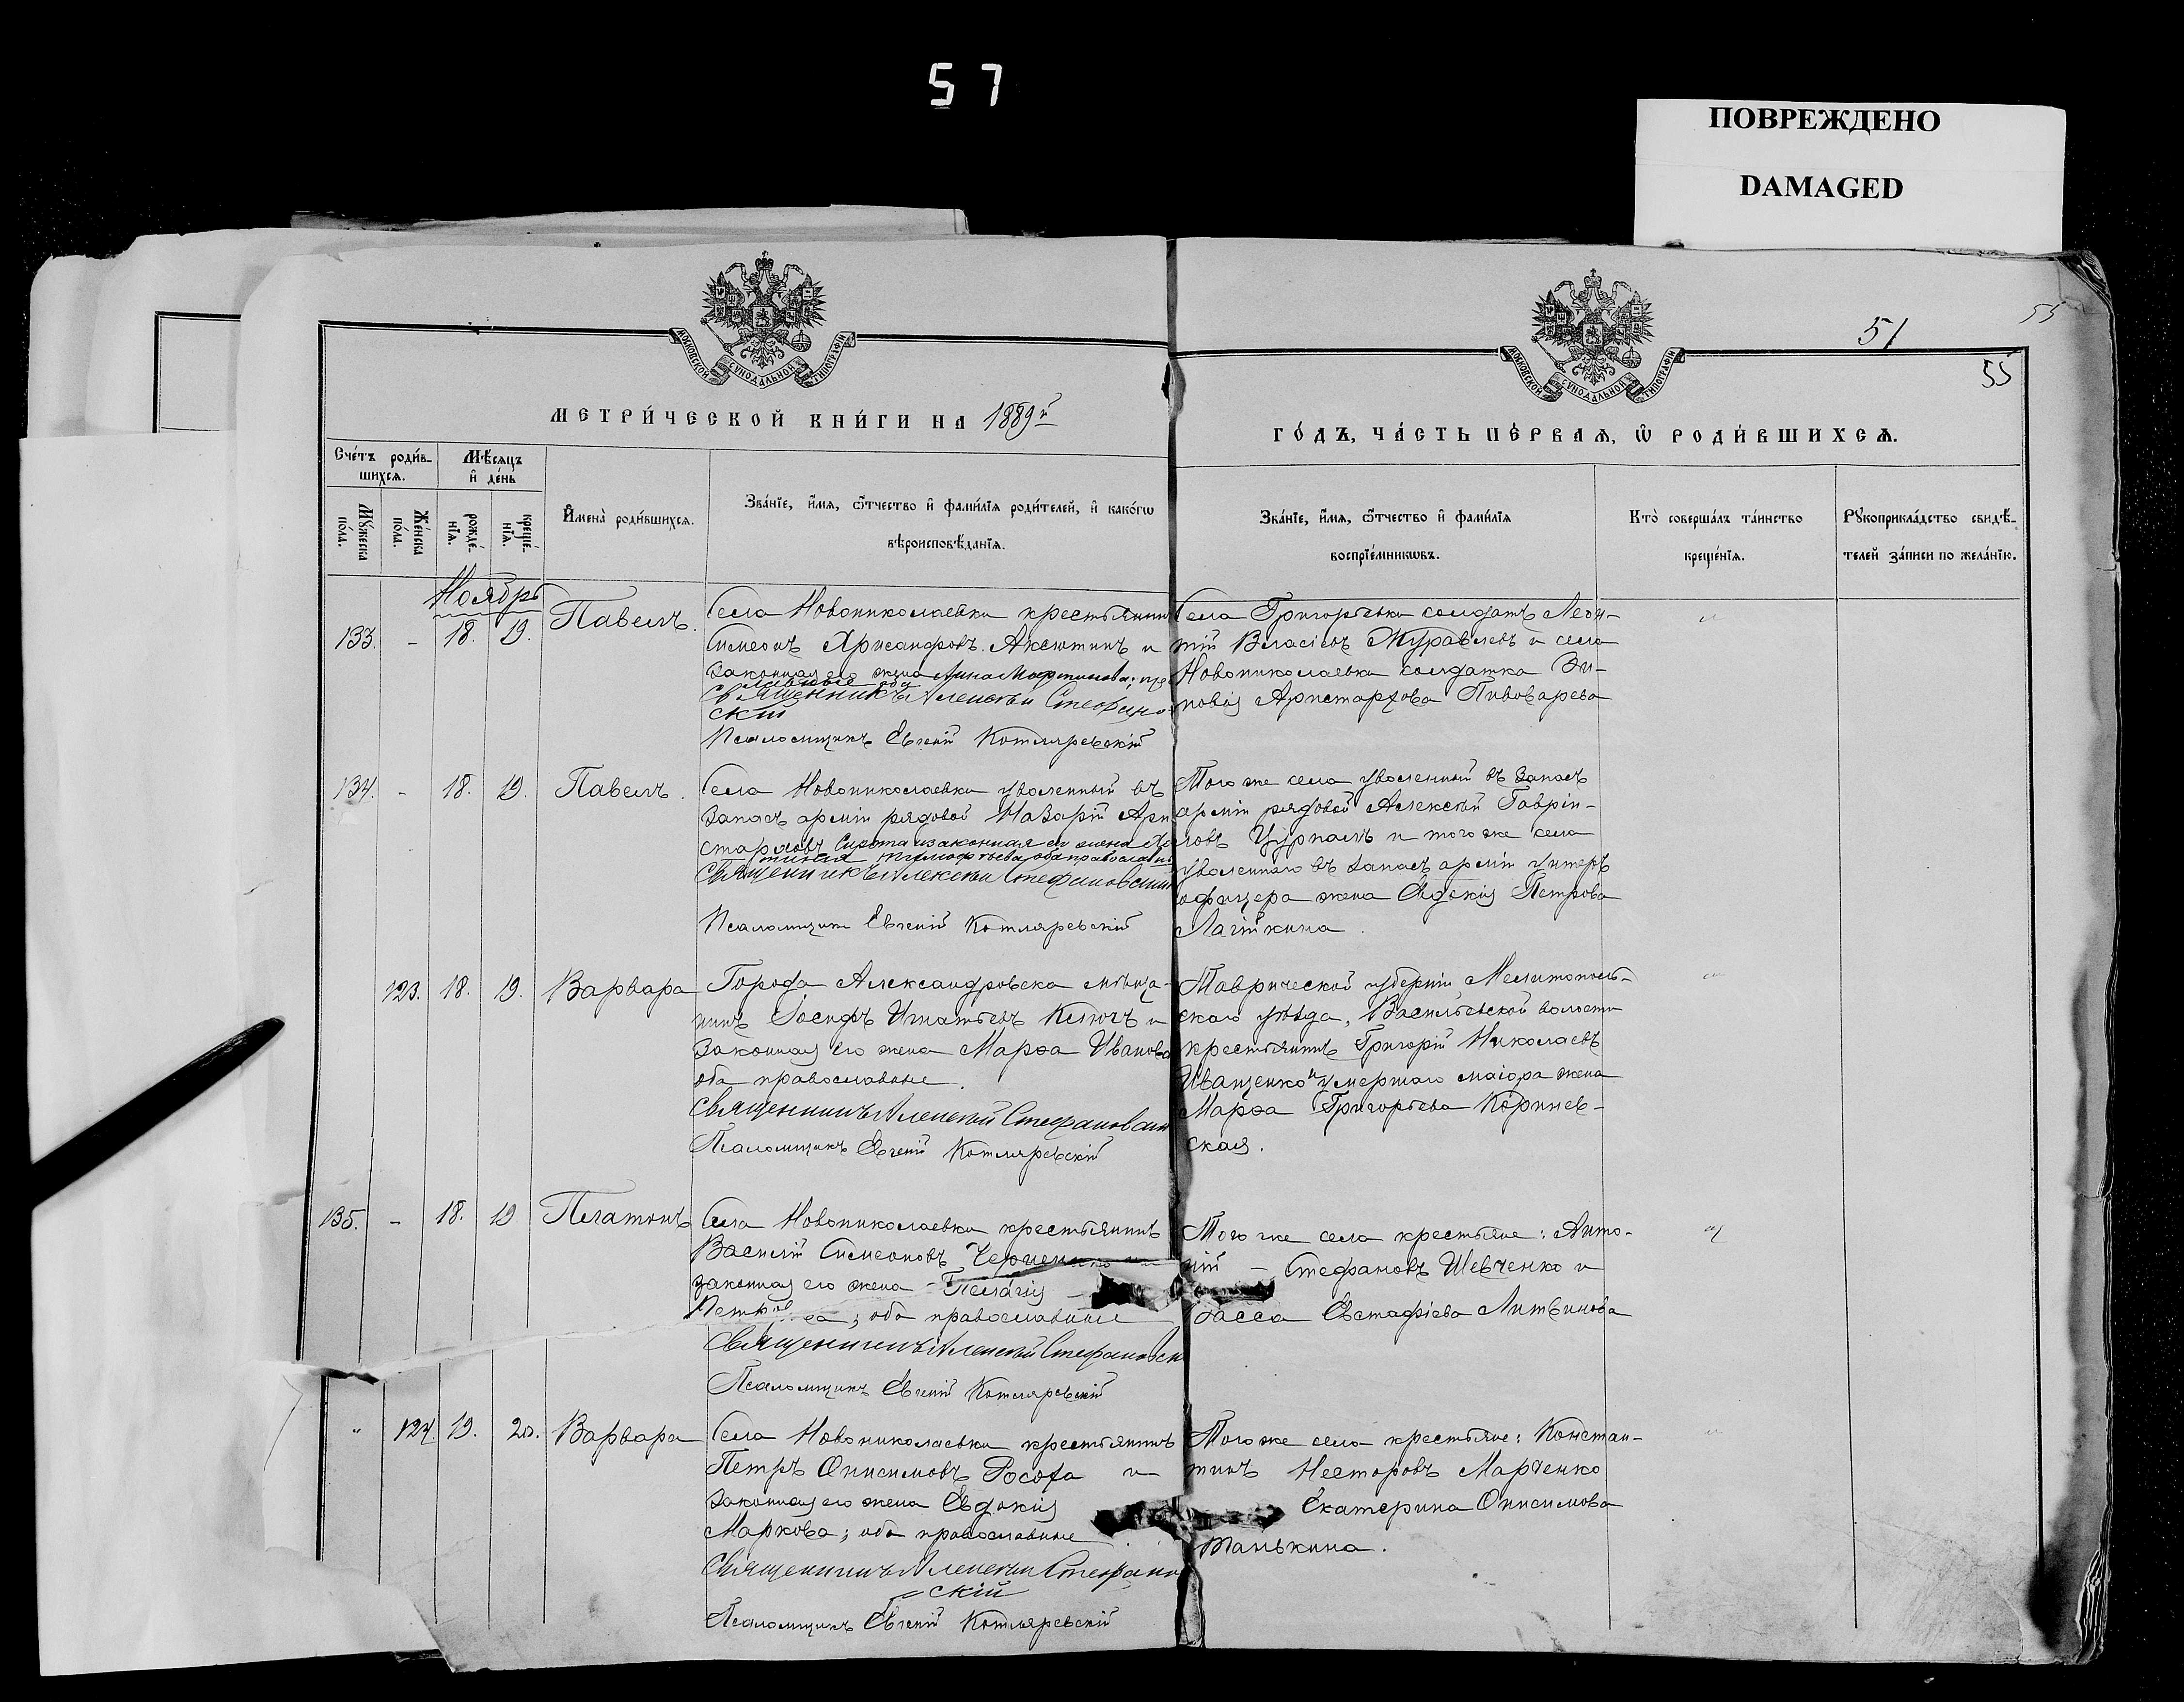 57
ПОВРЕЖДЕНО
DAMAGED
МОСКОВСКОЙ СѴНОДАЛЬНОЙ ТИПОГРАФІИ
МОСКОВСКОЙ СѴНОДАЛЬНОЙ ТИПОГРАФІИ
51
55
55
МЕТРИ́ЧЕСКОЙ КНИ́ГИ НА 1889й
ГО́ДЪ, ЧА́СТЬ ПЕ́РВАѦ, Ѿ РОДИ́ВШИХСѦ.
Сче́тъ роди́в-
шихсѧ.
Мꙋ́жеска
по́ла.
Же́нска
по́ла.
Мѣ́сѧцъ
и҆ де́нь
рожде́-
нїѧ.
креще́-
нїѧ.
И҆мена̀ роди́вшихсѧ.
Зва́нїе, и҆́мѧ, ѻ҆́тчество и҆ фами́лїѧ роди́телей, и҆ како́гѡ
вѣроисповѣ́данїѧ.
Зва́нїе, и҆́мѧ, ѻ҆́тчество и҆ фами́лїѧ
воспрїе́мникѡвъ.
Кто̀ соверша́лъ та́инство
креще́нїѧ.
Рꙋкоприкла́дство свидѣ́-
телей за́писи по жела́нїю.
Ноябрь
133. - 18. 19. Павелъ.
Села Новониколаевки крестьянин
Симеонъ Хрисанфовъ Аксютинъ и
законная его жена Анна Мартинова; пр
славные оба
Священникъ Алексѣй Стефано
скій
Псаломщикъ Евгеній Котляревскій
Села Григорьевки солдатъ Леон-
тій Власіевъ Журавлевъ и села
Новониколаевки солдатка Зи-
новія Аристархова Пивоварева
134. - 18. 19. Павелъ.
Села Новониколаевки уволенный въ
запасъ арміи рядовой Назарій Ари
старховъ Сирота и законная его жена
Тимофѣева, оба православн
Священникъ Алексѣй Стефановскій
Псаломщикъ Евгеній Котляревскій
Того же села уволенный въ запасъ
арміи рядовой Алексѣй Гавріи-
ловъ Цурпалъ и того же села
уволеннаго въ запасъ арміи унтеръ
офицера жена Евдокія Петрова
123. 18. 19. Варвара
Города Александровска мѣща-
нинъ Іосифъ Игнатьевъ Ключъ и
законная его жена Марѳа Иванова
оба православные.
Священникъ Алексѣй Стефановскі
Псаломщикъ Евгеній Котляревскій
Таврической губерніи Мелитополь-
скаго уѣзда, Васильевской волости
крестьянинъ Григорій Николаевъ
Иващенко и умершаго маіора жена
Марѳа Григорьева Коринев-
ская.
135. - 18. 19 Платонъ
Села Новониколаевки крестьянинъ
Василій Симеоновъ
законная его жена Пелагія
Петр ва; оба православные
Священникъ Алексѣй Стефановск
Псаломщикъ Евгеній Котляревскій
Того же села крестьяне: Анто-
ній - Стефановъ Шевченко и
Васса Евстафіева Литвинова
" 124. 19. 20. Варвара
Села Новониколаевки крестьянинъ
Петръ Онисимовъ Росоха и
законная его жена Евдокія
Маркова; оба православные
Священникъ Алексѣй Стефано
скій
Псаломщикъ Евгеній Котляревскій
Того же села крестьяне: Констан-
тинъ Несторовъ Марченко
Екатерина Онисимова
Танькина.